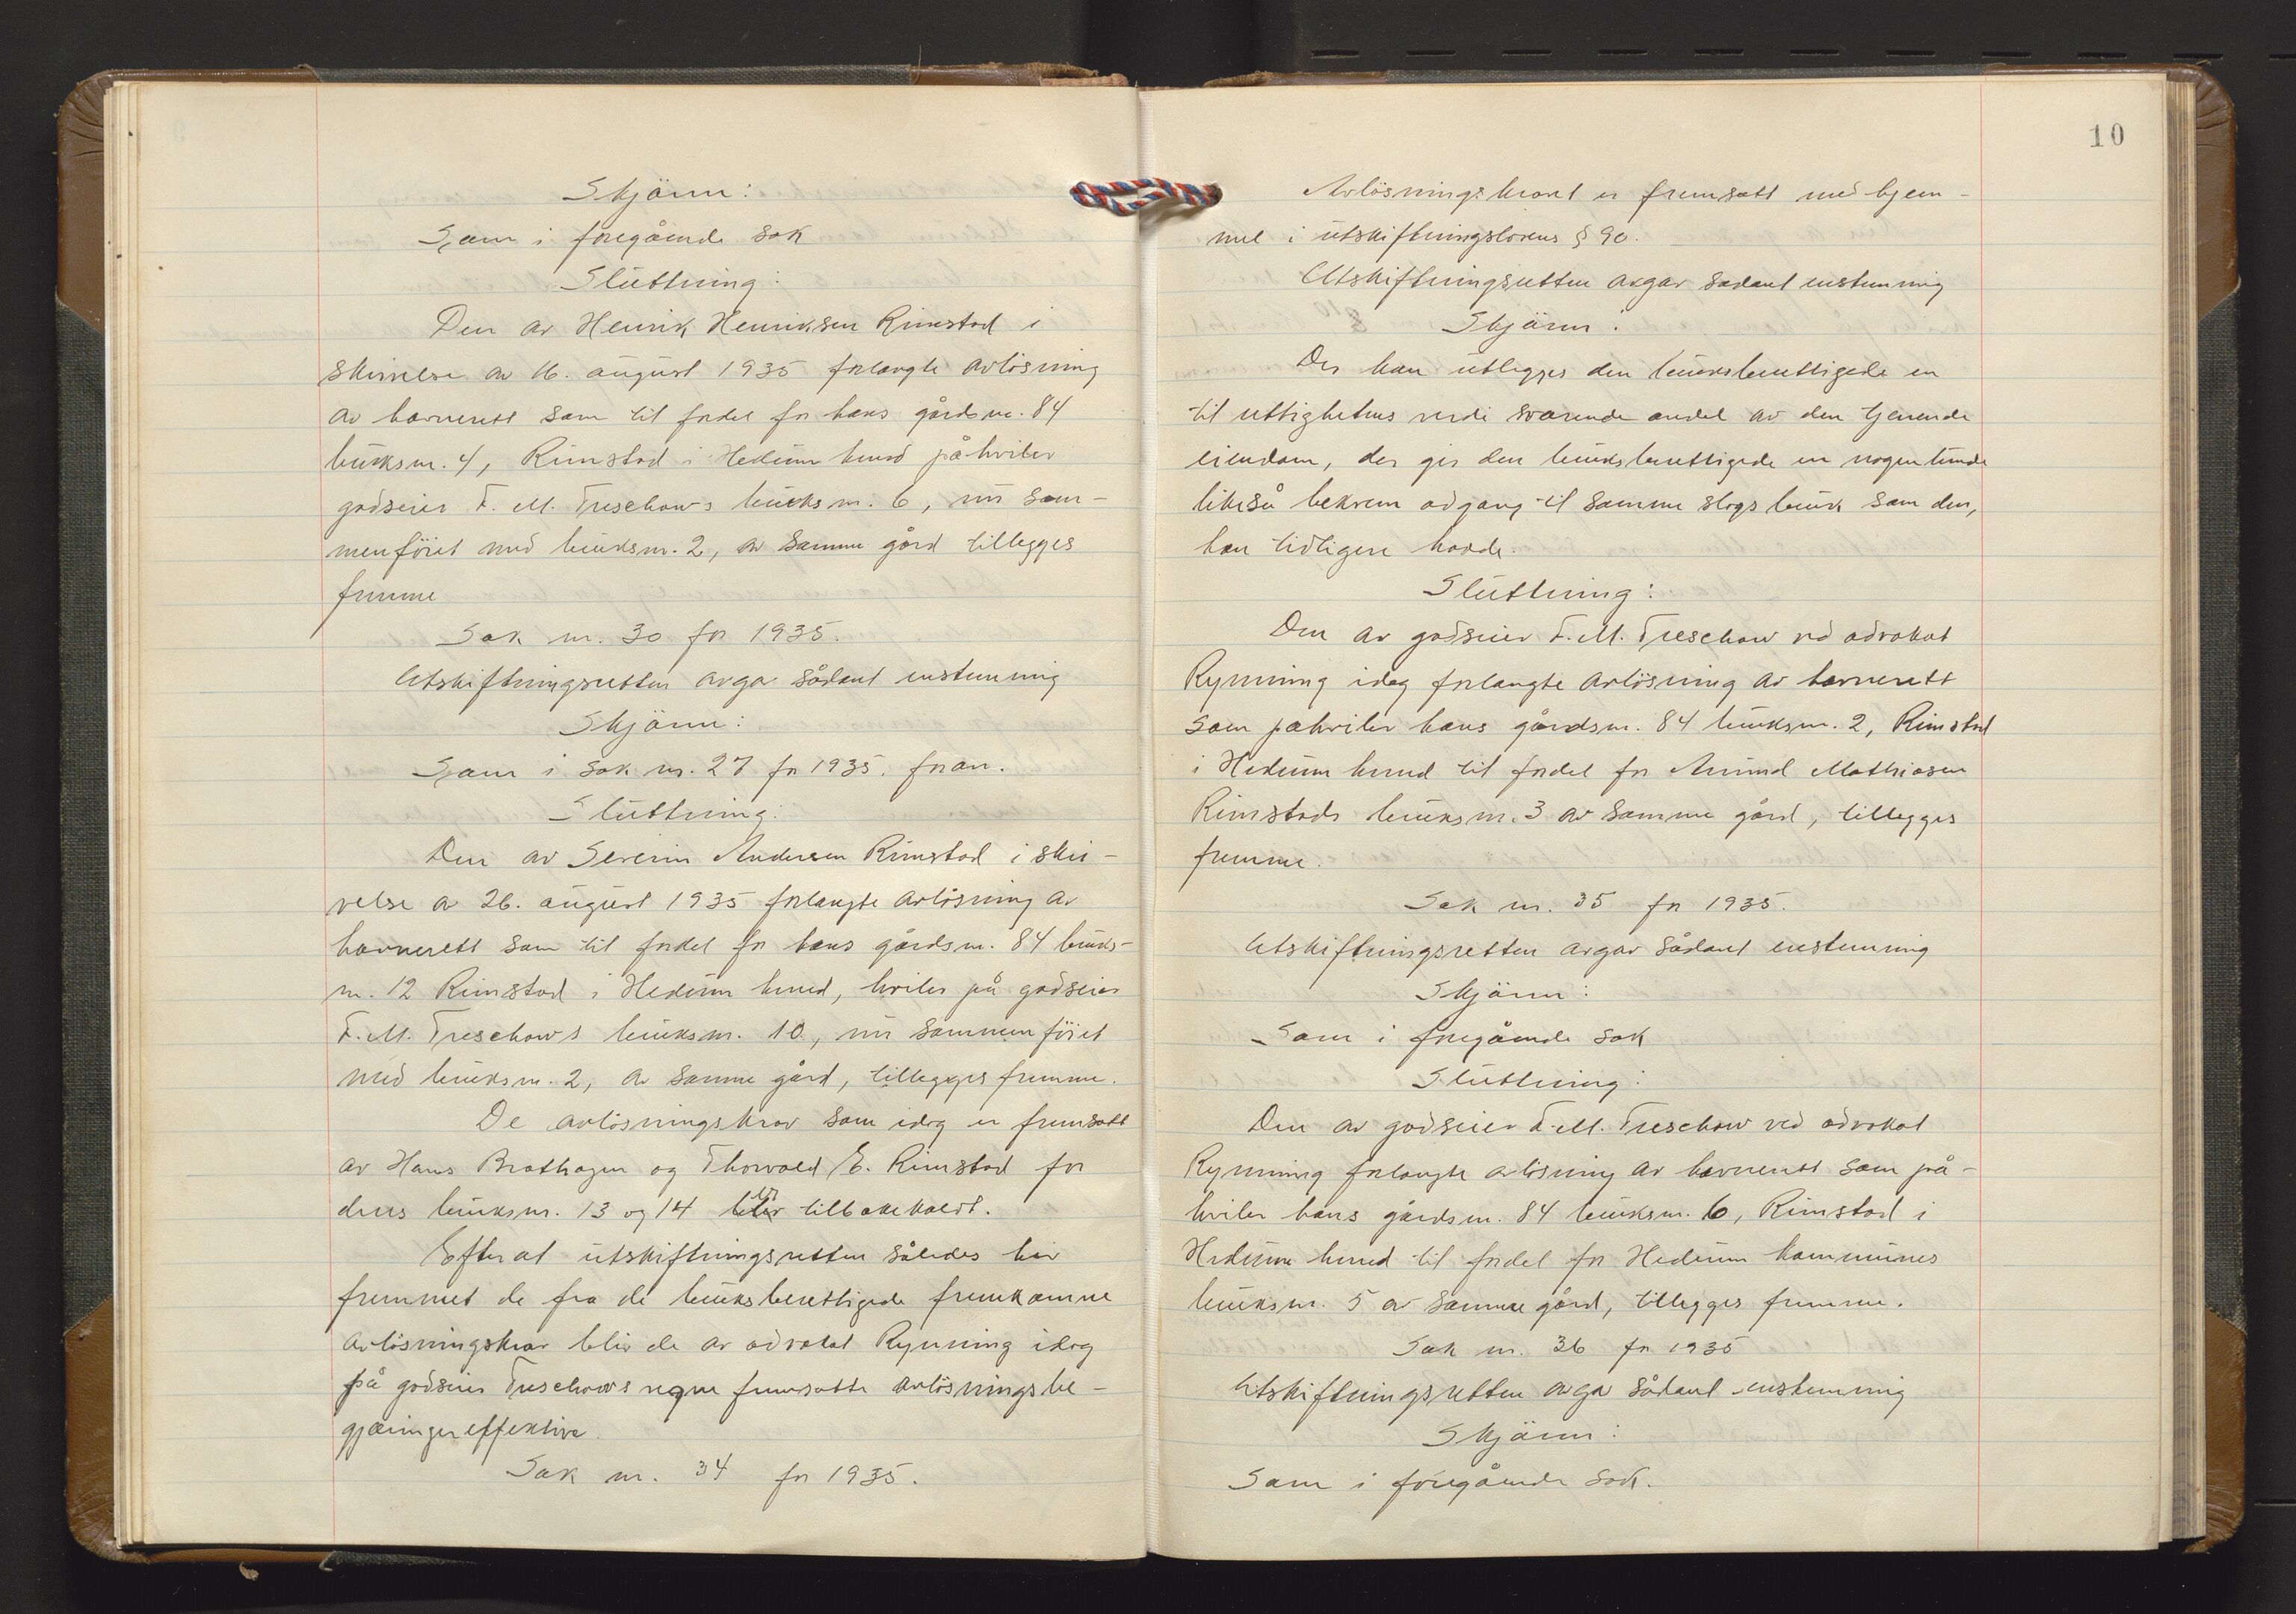 Skjönn:
Som i foregående sak
Sluttning:
Den av Henrik Henriksen Rimstad i
skrivelse av 16. august 1935 forlangte avlösning
av havnerett som til fordel for hans gårdsnr. 84
bruksnr. 4, Rimstad i Hedrum herred påhviler
godseier F. M. Treschow's bruksnr. 6, nu sam-
menföiet med bruksnr. 2, av samme gård tillegges
fremme
Sak nr. 30 for 1935.
Utskiftningsretten avga sådant enstemmig
Skjönn:
Som i sak nr. 27 for 1935. foran.
Sluttning:
Den av Severin Andersen Rimstad i skri-
velse av 26. august 1935 forlangte avlösning av
havnerett som til fordel for hans gårdsnr. 84 bruks-
nr. 12 Rimstad i Hedrum herred, hviler på godseier
F. M. Treschow's bruksnr. 10, nu sammenföiet
med bruksnr. 2, av samme gård, tillegges fremme.
De avlösningskrav som idag er fremsatt
av Hans Brathagen og Thorvald E. Rimstad for
deres bruksnr. 13 og 14 blir tilbakeholdt.
Efter at utskiftningsretten således har
fremmet de fra de bruksberettigede fremkomne
avlösningskrav blir de av advokat Rynning idag
på godseier Treschow's vegne fremsatte avlösningsbe-
gjæringer effektive.
Sak nr. 34 for 1935.
10
Avlösningskravet er fremsatt med hjem-
mel i utskiftningslovens § 90.
Utskiftningsretten avgav sådant enstemmig
Skjönn:
Der kan utlegges den bruksberettigede en
til rettighetens verdi svarende andel av den tjenende
eiendom, der gir den bruksberettigede en nogenlunde
likeså bekvem adgang til samme slags bruk som den,
han tidligere hadde.
Sluttning:
Den av godseier F. M. Treschow ved advokat
Rynning idag forlangte avlösning av havnerett
som påhviler hans gårdsnr. 84 bruksnr. 2, Rimstad
i Hedrum herred til fordel for Amund Mathiasen
Rimstads bruksnr. 3 av samme gård, tillegges
fremme.
Sak nr. 35 for 1935.
Utskiftningsretten avgav sådant enstemmig
Skjönn:
Som i foregående sak
Sluttning:
Den av godseier F. M. Treschow ved advokat
Rynning forlangte avlösning av havnerett som på-
hviler hans gårdsnr. 84 bruksnr. 6, Rimstad i
Hedrum herred til fordel for Hedrum kommunes
bruksnr. 5 av samme gård, tillegges fremme.
Sak nr. 36 for 1935
Utskiftningsretten avga sådant enstemmig
Skjönn:
Som i foregående sak.